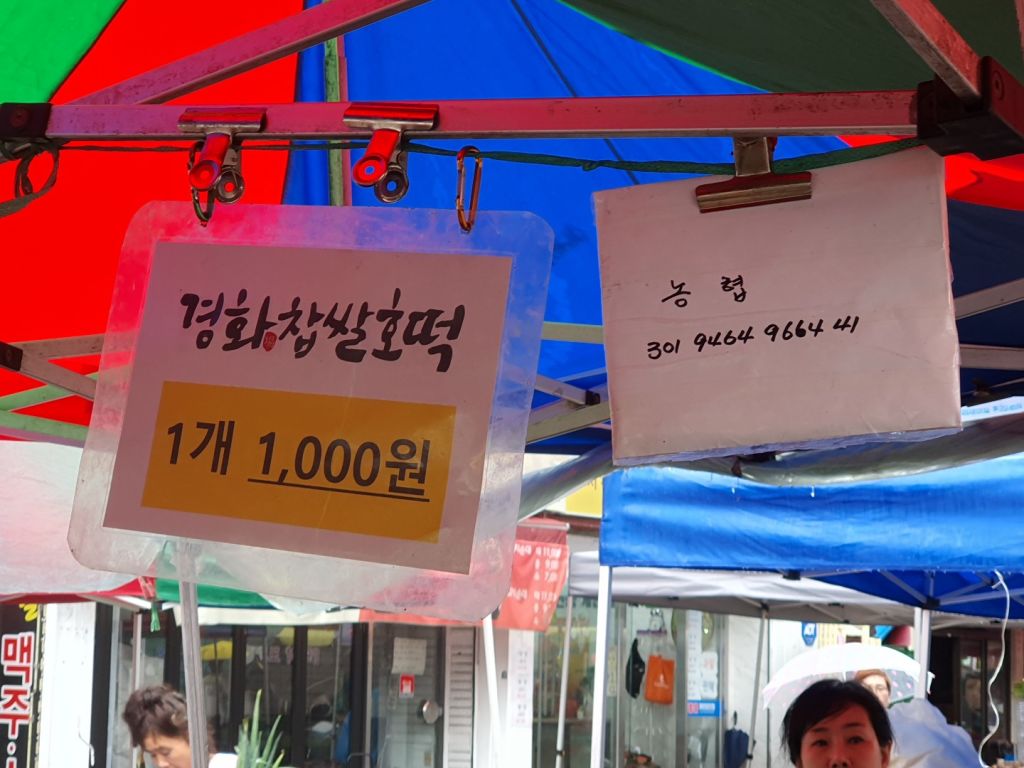 경화찹쌀호떡
1개 1,000원
농협
301 9464 9664 41
맥주